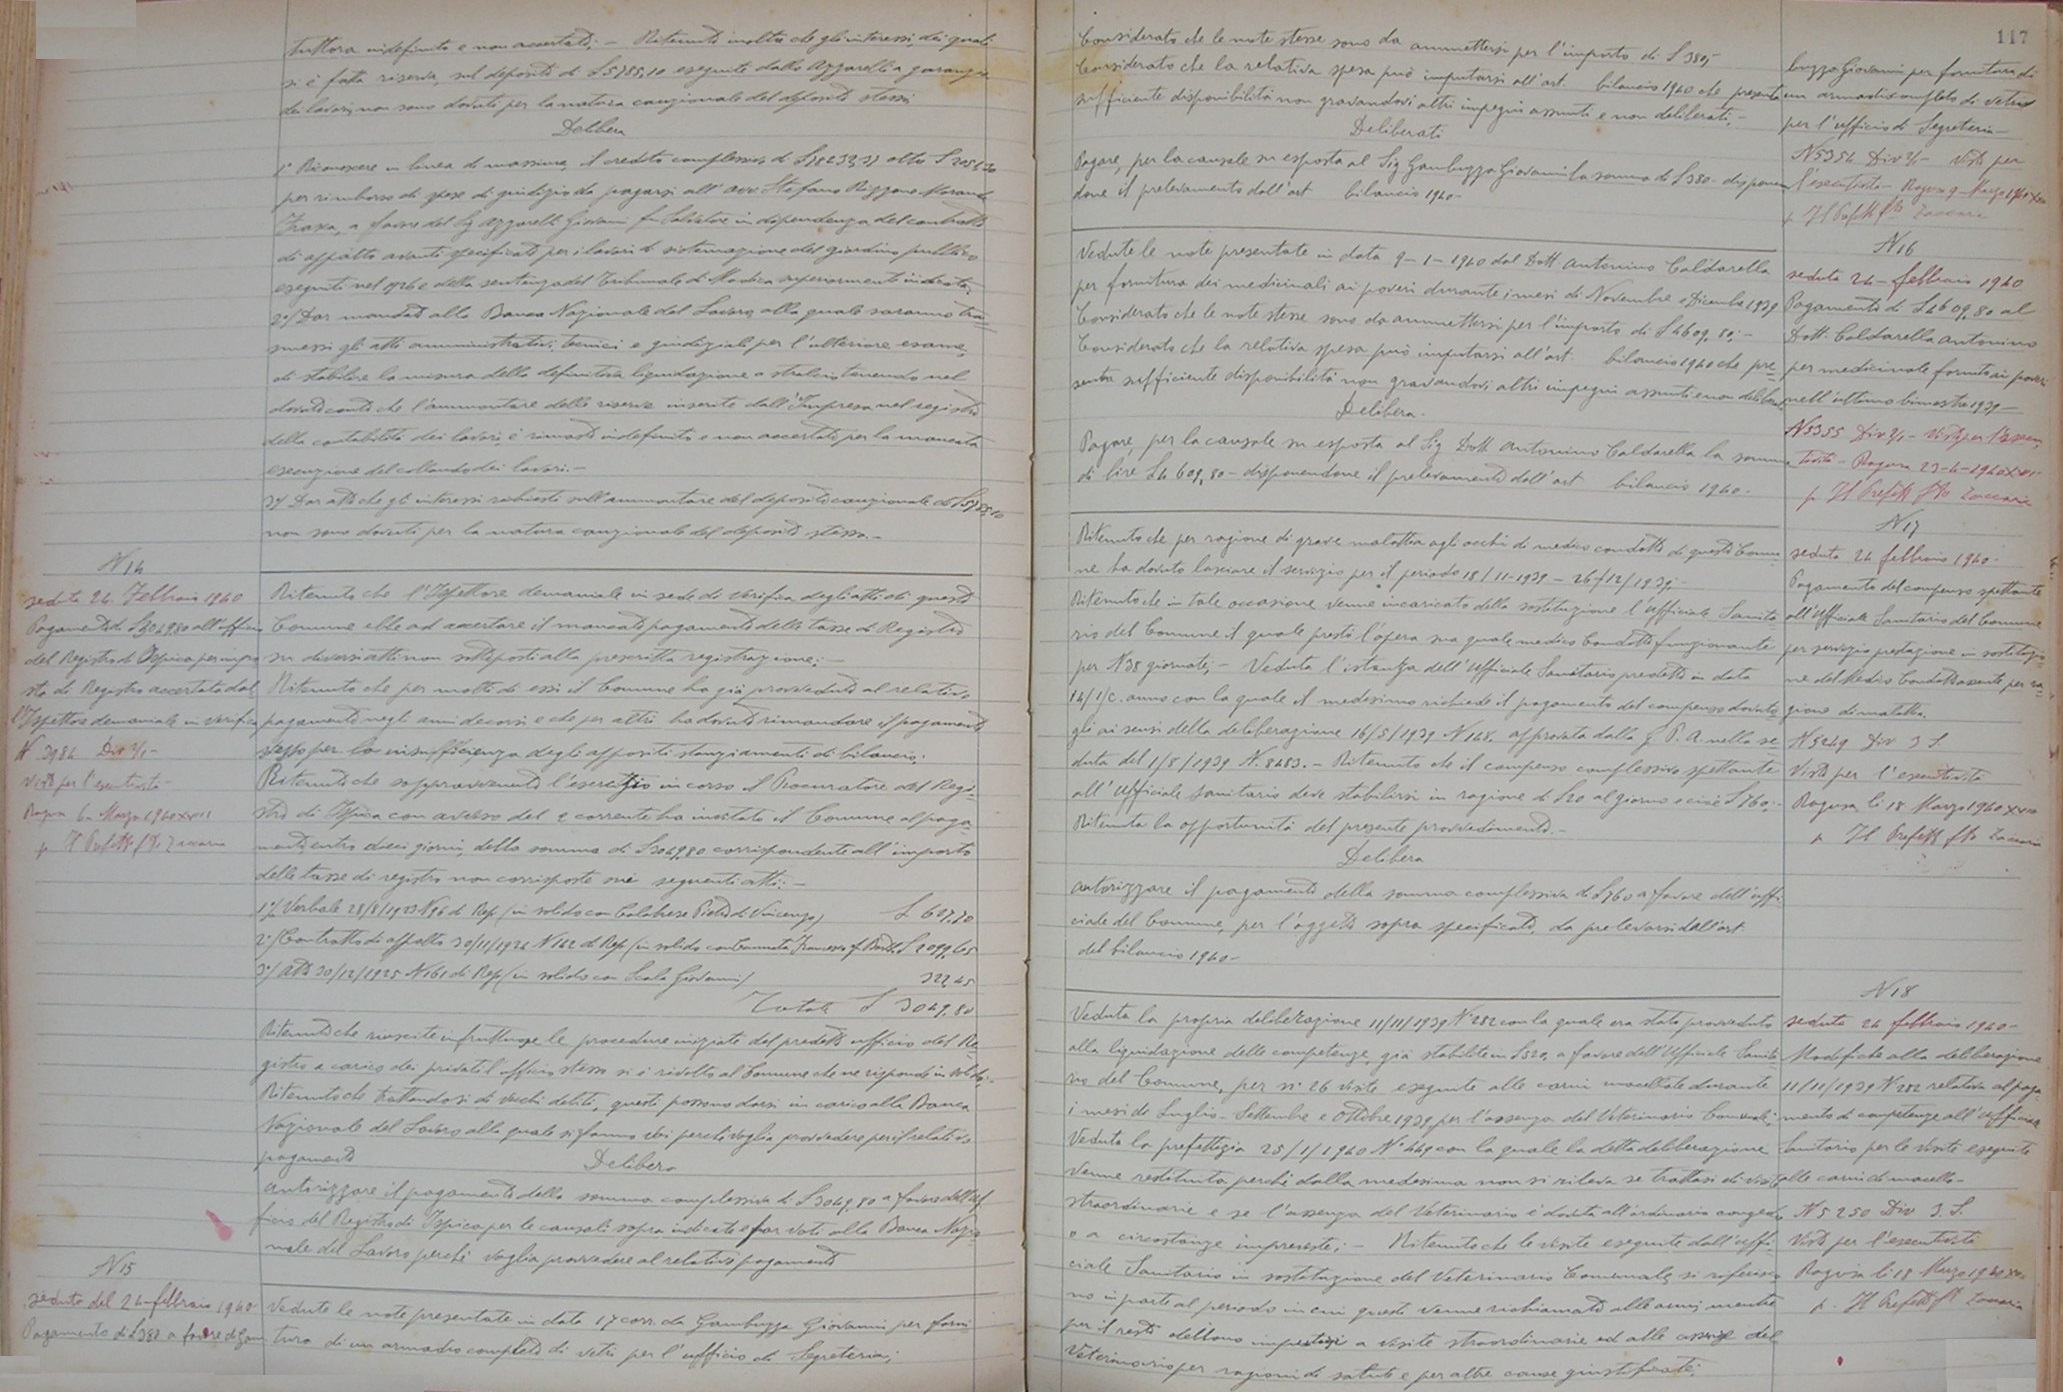 tuttora indefinito e non accertato; - Ritenuto inoltre che gli interessi, dei quali
si è fatta riserva, sul deposito di £ 5785,10 eseguito dallo Azzarelli a garanzia
dei lavori, non sono dovuti per la natura cauzionale del deposito stesso
Delibera
1° Riconoscere in linea di massima, il credito complessivo di £ oltre £
per rimborso di spese di giudizio da pagarsi all'avv. Stefano Rizzone Morand
a favore del Sig Azzarelli Giovanni fu Salvatore in dipendenza del contratto
di appalto avanti specificato per i lavori di sistemazione del giardino pubblico
eseguiti nel 1926 e della sentenza del Tribunale di Modica superiormente indicata;
2°/ Dar mandato alla Banca Nazionale del Lavoro, alla quale saranno tra=
smessi gli atti amministrativi, tecnici e giudiziali per l'ulteriore esame,
di stabilire la misura della definitiva liquidazione a stralcio tenendo nel
dovuto conto che l'ammontare delle riserve inserite dall'Impresa nel registro
della contabilità dei lavori, è rimasto indefinito e non accertato per la mancata
esecuzione del collaudo dei lavori.-
3°/ Dar atto che gli interessi richiesti sull'ammontare del deposito cauzionale di £ 5785,10
non sono dovuti per la natura cauzionale del deposito stesso.-
N 14
seduta 24 Febbraio 1940
Pagamento di £ 3049,80 all'ufficio
del Registro di Ispica per impo
sta di Registro accertata dal
l'Ispettore demaniale in verifica
N. 3984 Div 2/1-
Visto per l'esecutività-
Ragusa 6-Marzo 1940 XVIII
p Il Prefetto f/to Zaccaria
Ritenuto che l'Ispettore demaniale in sede di verifica degli atti di questo
Comune ebbe ad accertare il mancato pagamento della tassa di Registro
su diversi atti non sottoposti alla prescritta registrazione;-
Ritenuto che per molti di essi il Comune ha già provveduto al relativo
pagamento negli anni decorsi e che per altri ha dovuto rimandare il pagamento
stesso per la insufficienza degli appositi stanziamenti di bilancio;
Ritenuto che sopravvenendo l'esercizio in corso il Procuratore del Regi=
stro di Ispica con avviso del 2 corrente ha invitato il Comune al paga=
mento, entro dieci giorni, della somma di £ 3049,80 corrispondente all'importo
delle tasse di registro non corrisposte nei seguenti atti:-
1°/ Verbale 28/8/1923 N 96 di Rep. (in solido con Calabrese Pietro di Vincenzo) £ 627,70
2°/ Contratto di appalto 30/11/1924 N 142 di Rep (in solido con Cannata Francesco £ 2099,65
3°/ Atto 30/12/1925 N 161 di Rep (in solido con Scala Giovanni) 322,45
Totale £ 3049,80
Ritenuto che riuscite infruttuose le procedure iniziate dal predetto ufficio del Re=
gistro a carico dei privati l'ufficio stesso si è rivolto al Comune che ne risponde in solido;
Ritenuto che trattandosi di vecchi debiti, questi possono darsi in carico alla Banca
Nazionale del Lavoro alla quale si fanno voti perchè voglia provvedere per il relativo
pagamento
Delibera
autorizzare il pagamento della somma complessiva di £ 3049,80 a favore dell'uf
ficio del Registro di Ispica per le causali sopra indicate e far voti alla Banca Nazio
nale del Lavoro perchè voglia provvedere al relativo pagamento
N 15
seduta del 24-febbraio 1940
Pagamento di £ 380 a favore di Gam
Vedute le note presentate in data 17 corr. da Gambuzza Giovanni per forni
tura di un armadio completo di vetri per l'ufficio di Segreteria;
117
Considerato che le note stesse sono da ammettersi per l'importo di £ 380,-
Considerato che la relativa spesa può imputarsi all'art. bilancio 1940 che presenta
sufficiente disponibilità non gravandovi altri impegni assunti e non deliberati;-
Deliberati
Pagare, per la causale su esposta al Sig Gambuzza Giovanni la somma di £ 380- disponen
done il prelevamento dall'art bilancio 1940-
buzza Giovanni per fornitura di
un armadio completo di vetri
per l'ufficio di Segreteria-
N 5354 Div 2/1- Visto per
l'esecutività- Ragusa 9-Marzo 1940 XVIII
p Il Prefetto f/to Zaccaria
N 16
seduta 24-febbraio 1940
Pagamento di £ 4609,80 al
Dott. Caldarella Antonino
per medicinale fornito ai poveri
nell'ultimo bimestre 1939-
N 5355 Div 2/1- Visto per l'esecu
tività- Ragusa 23-4-1940 XVIII
p Il Prefetto f/to Zaccaria
Vedute le note presentate in data 9-1-1940 dal Dott Antonino Caldarella
per fornitura dei medicinali ai poveri durante i mesi di Novembre e Dicembre 1939
Considerato che le note stesse sono da ammettersi per l'importo di £ 4609,80;-
Considerato che la relativa spesa può imputarsi all'art. bilancio 1940 che pre=
senta sufficiente disponibilità non gravandovi altri impegni assunti e non deliberati
Delibera.
Pagare, per la causale su esposta al Sig Dott Antonino Caldarella la somma
di lire £ 4609,80- disponendone il prelevamento dall'art bilancio 1940-
N 17
seduta 24 febbraio 1940-
Pagamento del compenso spettante
all'Ufficiale Sanitario del Comune
per servizio prestato in sostituzio
ne del Medico Condotto assente per ra=
gione di malattia.
N 5249 Div 3 S.
Visto per l'esecutività
Ragusa li 18 Marzo 1940 XVIII
p Il Prefetto f/to Zaccaria
Ritenuto che per ragione di grave malattia agli occhi il medico condotto di questo Comu
ne ha dovuto lasciare il servizio per il periodo 18/11-1939 - 26/12/1939;-
Ritenuto che in tale occasione venne incaricato della sostituzione l'ufficiale Sanita
rio del Comune il quale prestò l'opera sua quale medico Condotto funzionante
per N 38 giornate;- Veduta l'istanza dell'Ufficiale Sanitario predetto in data
14/1/c. anno con la quale il medesimo richiede il pagamento del compenso dovuto
gli ai sensi della deliberazione 16/5/1939 N 148. approvata dalla G. P. A. nella se
duta del 1/8/1939 N. 8483.- Ritenuto che il compenso complessivo spettante
all'Ufficiale sanitario deve stabilirsi in ragione di £ 20 al giorno e cioè £ 760;-
Ritenuta la opportunità del presente provvedimento.-
Delibera
autorizzare il pagamento della somma complessiva di £ 760 a favore dell'uffi
ciale del Comune, per l'oggetto sopra specificato, da prelevarsi dall'art
del bilancio 1940-
N 18
seduta 24 febbraio 1940-
Modifiche alla deliberazione
11/11/1939 N 282 relativa al paga
mento di competenze all'ufficiale
Sanitario per le visite eseguite
alle carni di macello-
N 5250 Div 3. S.
Visto per l'esecutività
Ragusa li 18 Marzo 1940 XVIII
p. Il Prefetto f/to Zaccaria
Veduta la propria deliberazione 11/11/1939 N° 282 con la quale era stato provveduto
alla liquidazione delle competenze, già stabilite in £ 520, a favore dell'Ufficiale Sanita
rio del Comune, per n° 26 visite eseguite alle carni macellate durante
i mesi di Luglio- Settembre e Ottobre 1939 per l'assenza del Veterinario Comunale;
Veduta la prefettizia 25/1/1940 N° 449 con la quale la detta deliberazione
venne restituita perchè dalla medesima non si rileva se trattasi di visite
straordinarie e se l'assenza del Veterinario è dovuta all'ordinario congedo
o a circostanze impreviste;- Ritenuto che le visite eseguite dall'uffi=
ciale Sanitario in sostituzione del Veterinario Comunale, si riferisco
no in parte al periodo in cui questi venne richiamato alle armi, mentre
per il resto debbono imputarsi a visite straordinarie ed alle assenze del
Veterinario per ragioni di salute e per altre cause giustificate;